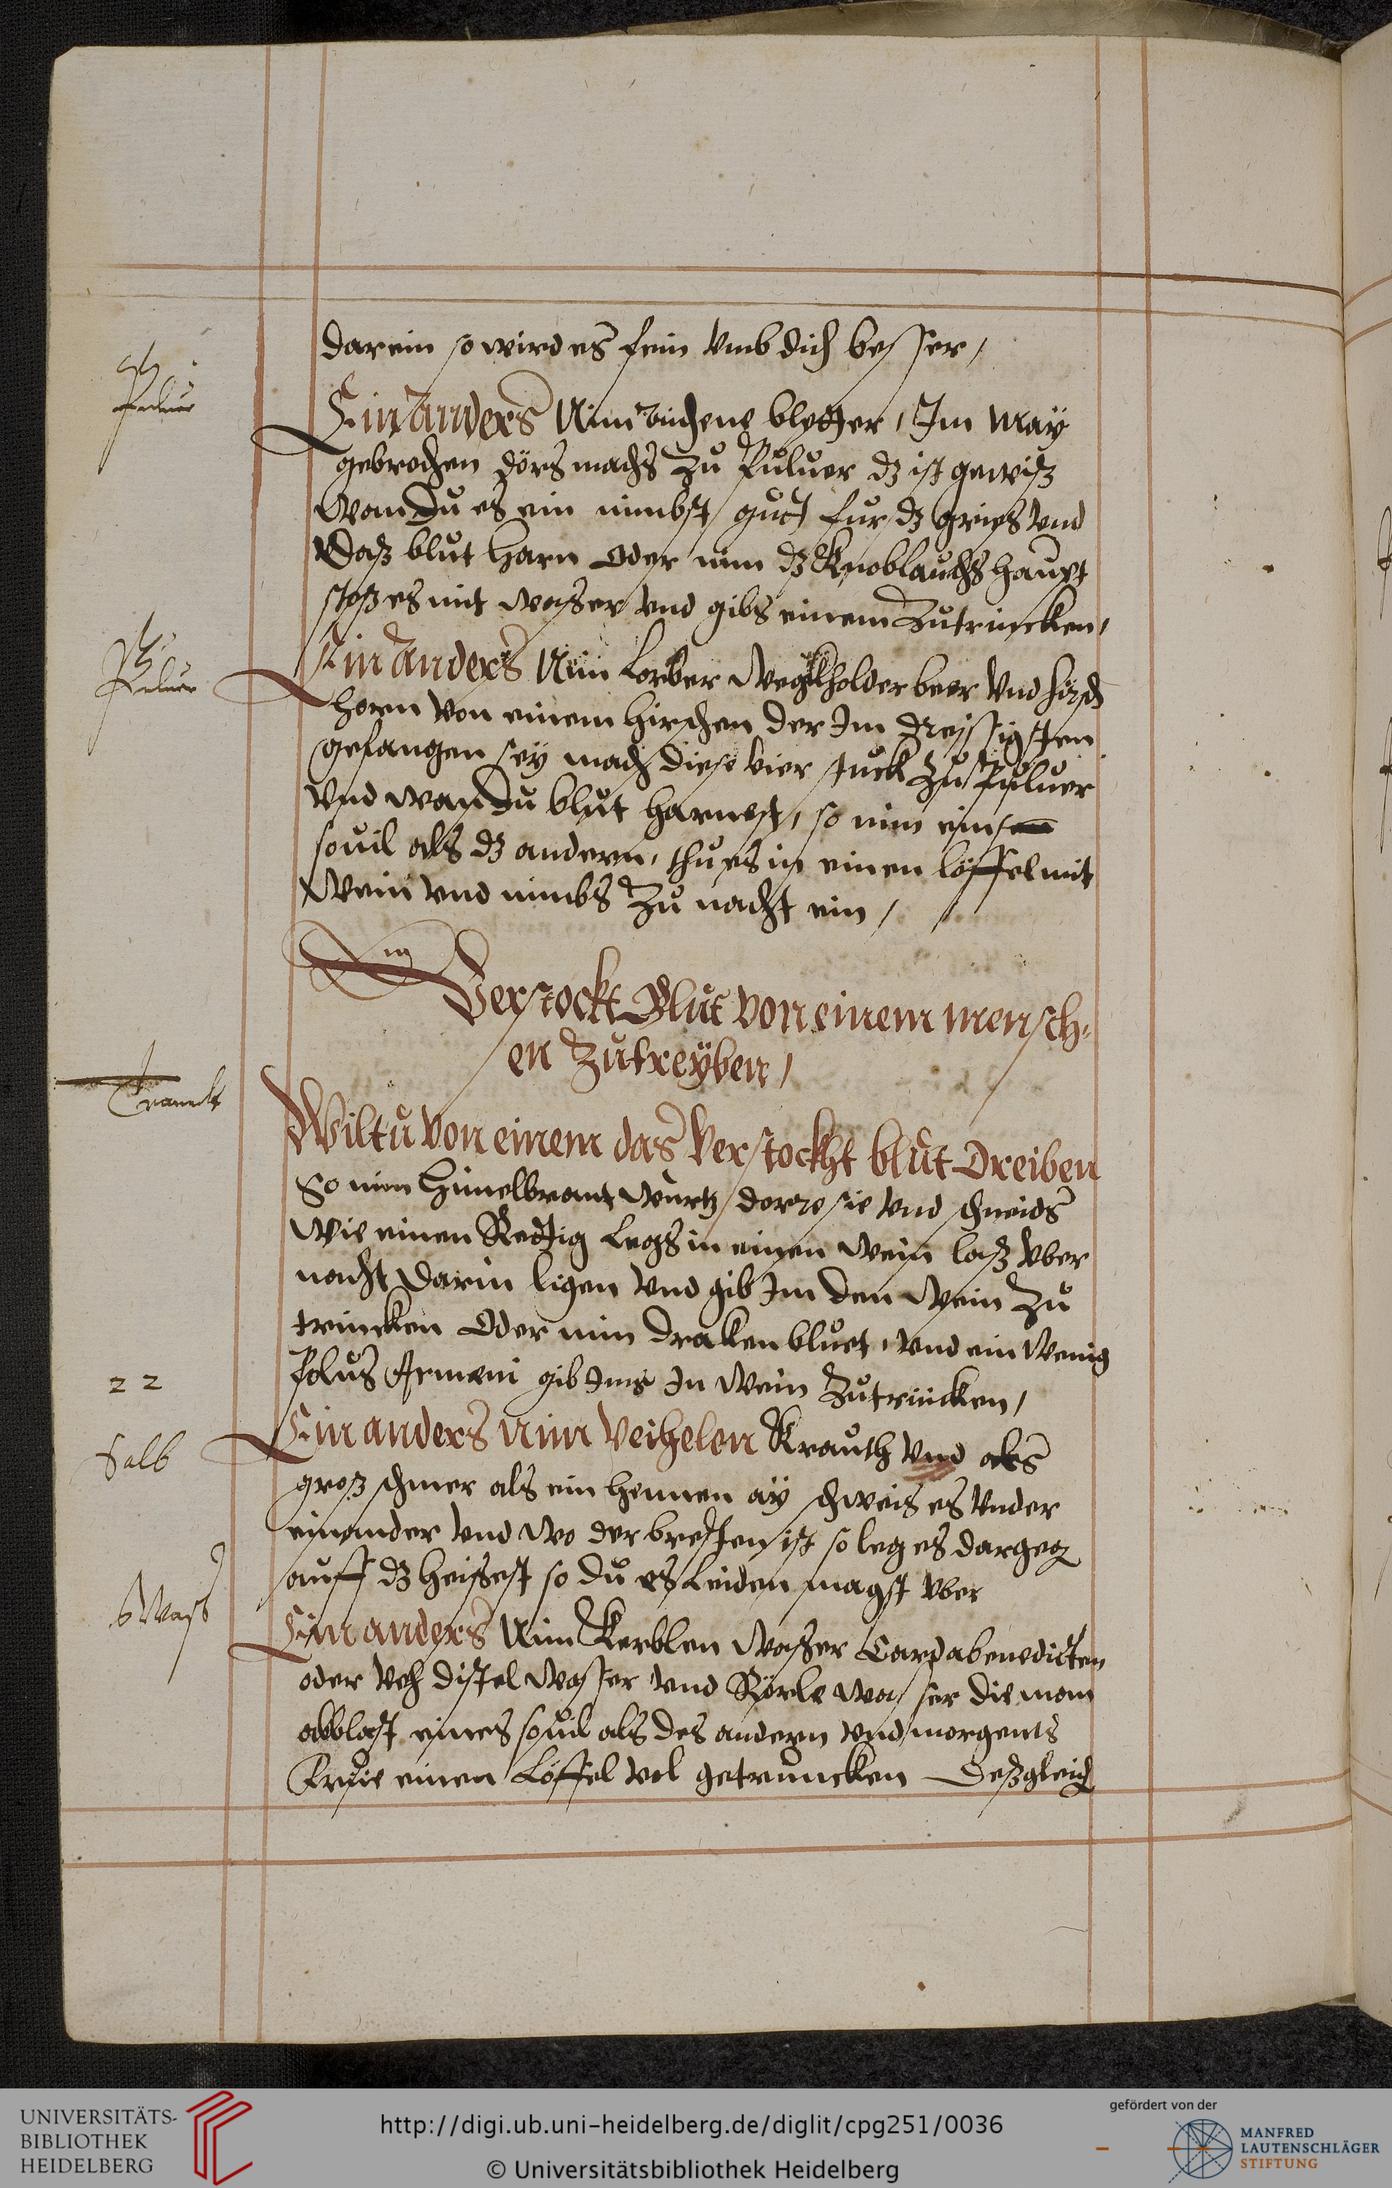 darein so wird es fein vmb dich besser /
Puluer
Ein anders Nim aichene bletter / Im May
gebrochen dörs machs zu Puluer dz ist gewiß
wan du es ein nimbst / gutt fur dz gries vnd
Daß blut harn oder nim dz Knoblauchs haupt
stoß es mit waßer vnd gibs einem zutrincken /
Puluer
Ein anders Nim Lorber Weghholder beer vnd hirsch
horn von einem hirschen der Im dreissigsten
gefangen sey mach diese vier stuck zu Puluer
vnd wan du blut harnest / so nim eins
souil als dz andern, thu es in einen löffel mit
Wein vnd nimbs zu nacht ein /
Verstockt Blut von einem mensch-
en zutreyben /
Tranckt
Wiltu von einem das verstockht blut dreiben
So nim himelbrant wurtz / dorre sie vnd schneids
Wie einen Rettig legs in einen Wein laß vber
nacht darin ligen vnd gib Im den Wein zu
trincken Oder nim draken bluet, vnd ein wenig
22
Polus Armeni gib Ims In Wein zutrincken /
Salb
Ein anders nim Veihelen Krauth vnd als
groß schmer als ein hennen ay schweis es vnder
einander vnd wo der bresten ist so leg es dargeg
auff dz heissest so du es leiden magst vber
Wass
Ein anders Nim Kerblen Waßer Cardabenedicten
oder veh distel wasser vnd Körle wasser die man
ablast eines souil als des andern vnd morgents
Frŭe einen Löffel vol getruncken Deßgleich
UNIVERSITÄTS-
BIBLIOTHEK
HEIDELBERG
http://digi.ub.uni-heidelberg.de/diglit/cpg251/0036
© Universitätsbibliothek Heidelberg
gefördert von der
MANFRED
LAUTENSCHLÄGER
STIFTUNG